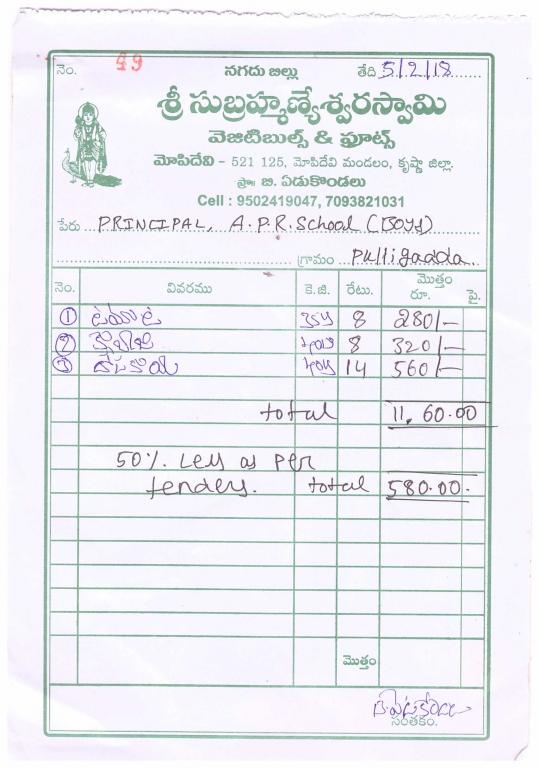 నెం. 99 నగదు బిల్లు తేది 5/2/18
శ్రీ సుబ్రహ్మణ్యేశ్వరస్వామి
వెజిటిబుల్స్ & ఫ్రూట్స్
మోపిదేవి – 521 125, మోపిదేవి మండలం, కృష్ణా జిల్లా.
ప్రొ॥ బి. ఏడుకొండలు
Cell : 9502419047, 7093821031
పేరు PRINCIPAL, A.P.R. School (BOYS)
గ్రామం Pulligadda
నెం. వివరము కె.జి. రేటు. మొత్తం రూ. పై.
1 టమాట 35 8 280/-
2 8 320/-
3 దోసకాయ 14 560/-
total 11,60.00
50% Less as per
tenders. total 580.00
మొత్తం
సంతకం.